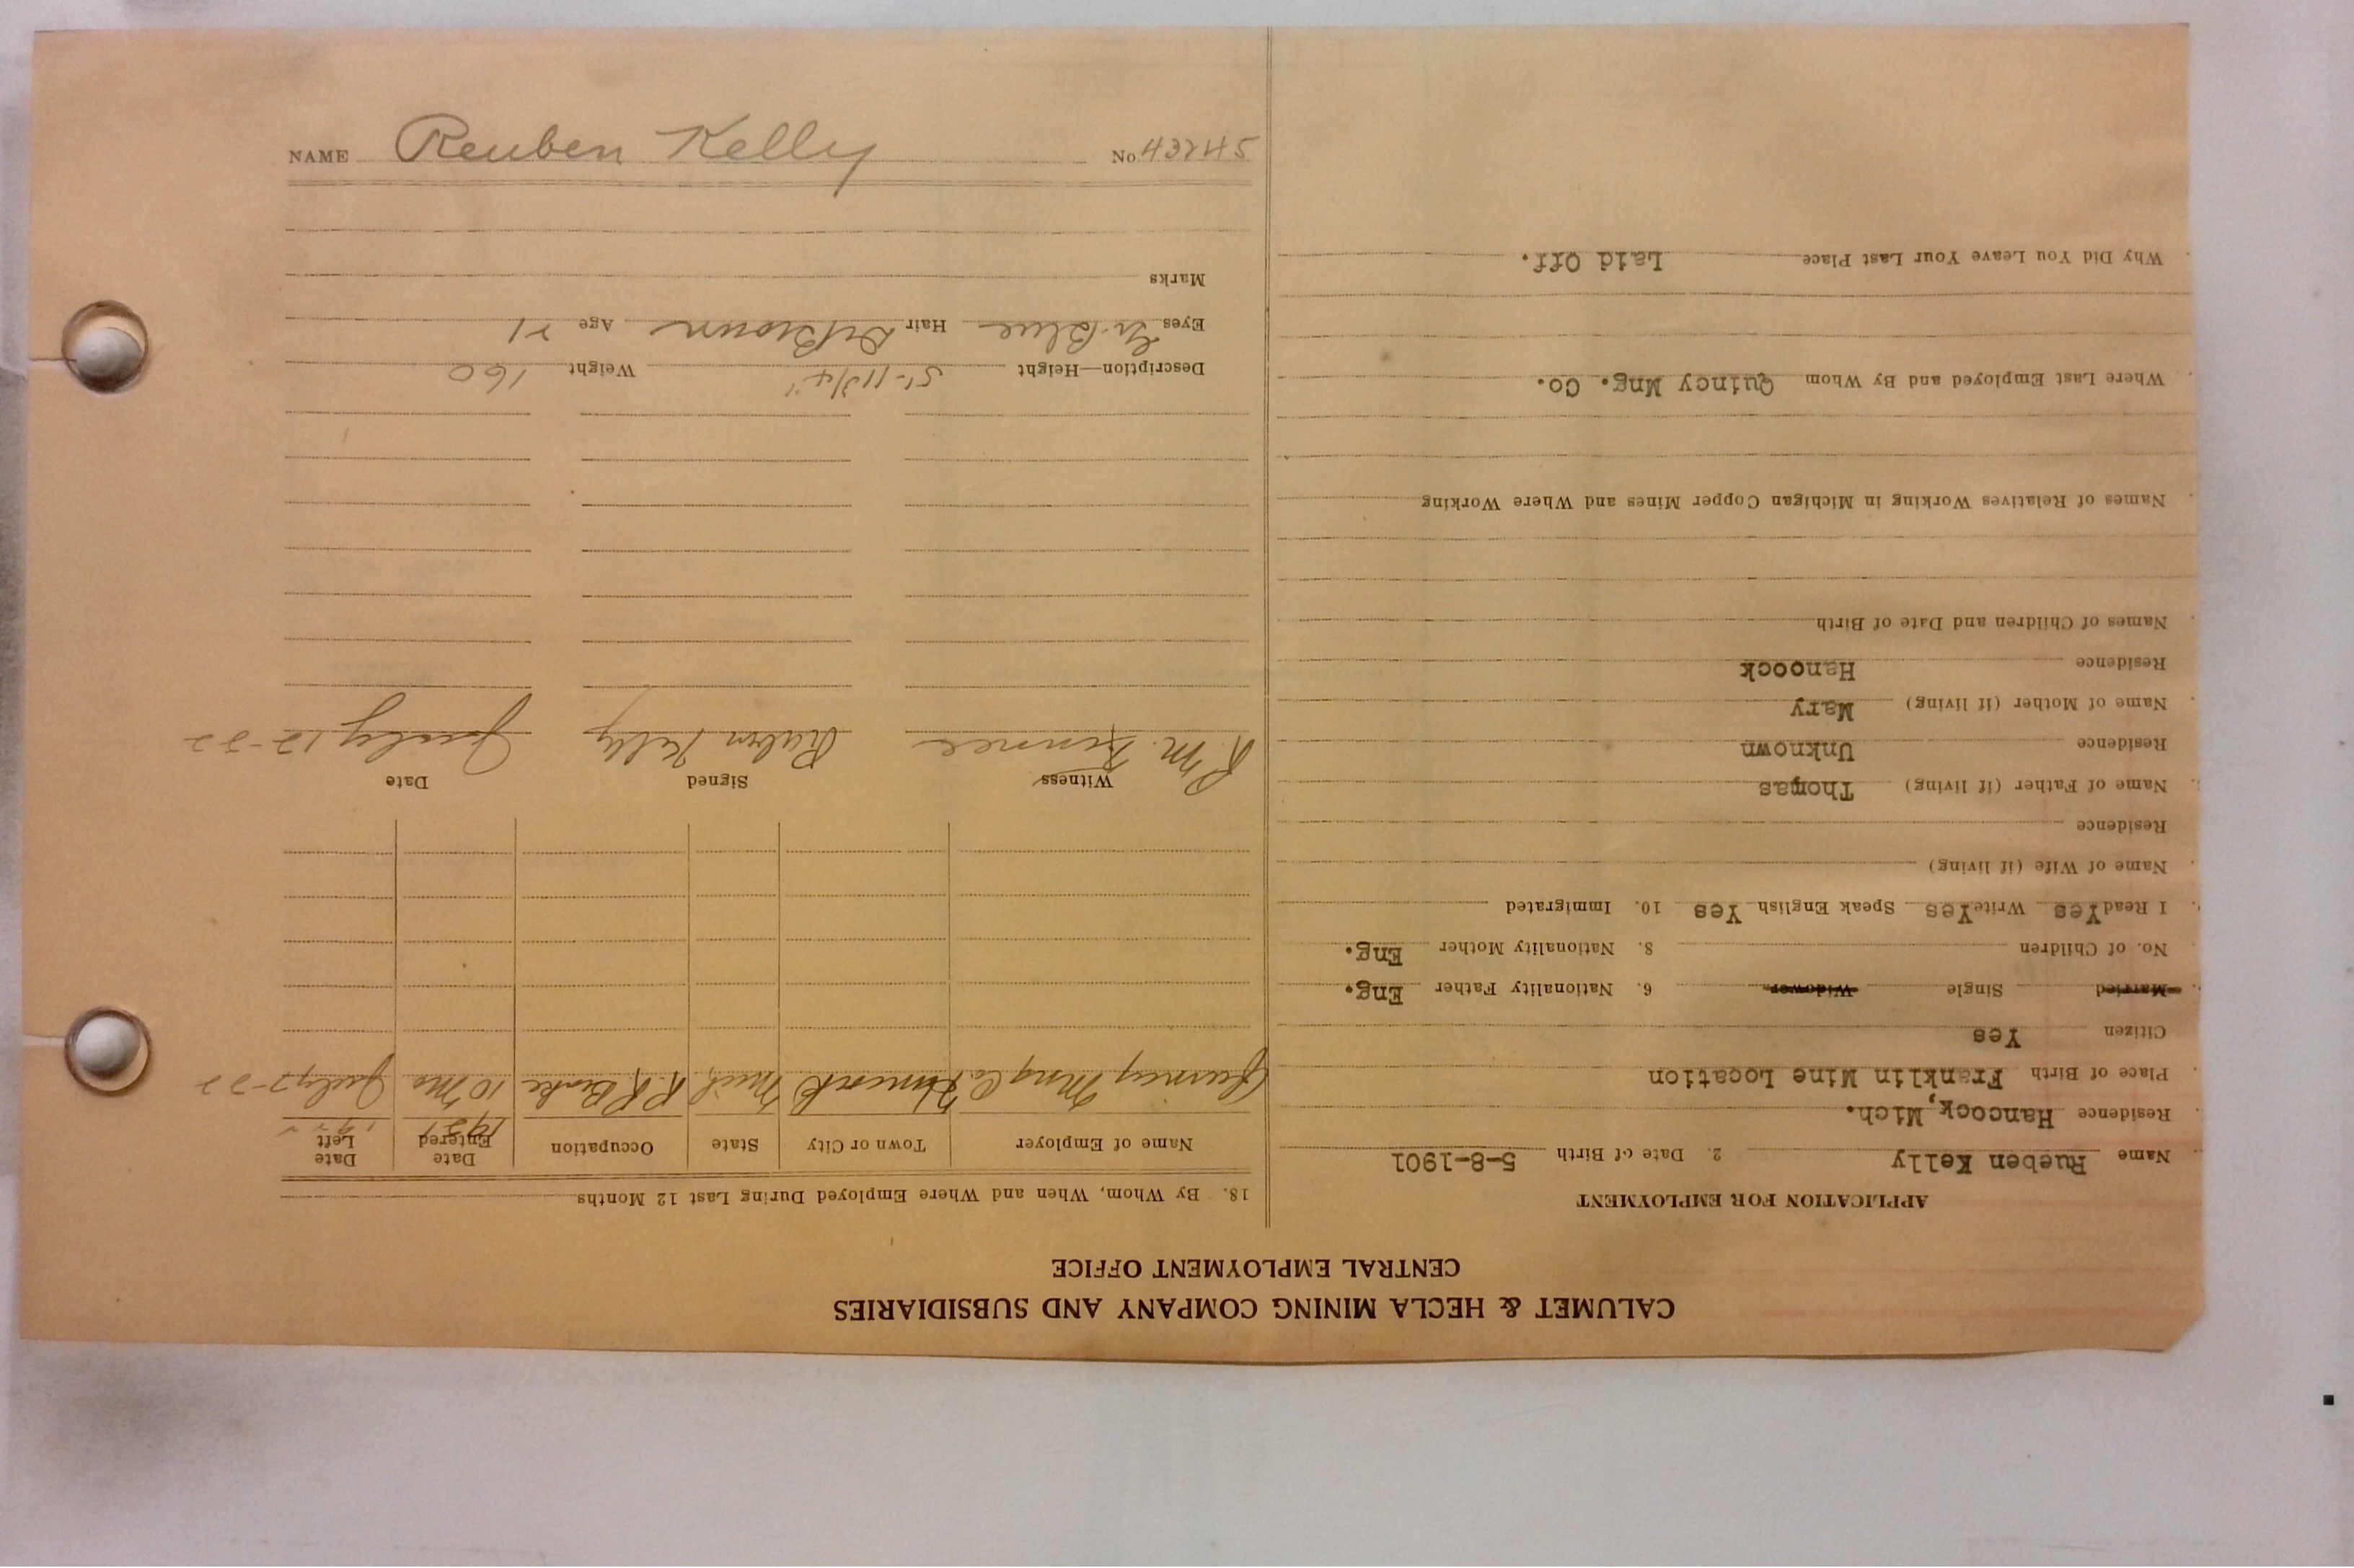 CALUMET & HECLA MINING COMPANY AND SUBSIDIARIES
CENTRAL EMPLOYMENT OFFICE
APPLICATION FOR EMPLOYMENT
Name Rueben Kelly 2. Date of Birth 5-8-1901
Residence Hancock, Mich.
Place of Birth Franklin Mine Location
Citizen Yes
Married Single Widower 6. Nationality Father Eng.
No. of Children 8. Nationality Mother Eng.
I Read Yes Write Yes Speak English Yes 10. Immigrated
Name of Wife (if living)
Residence
Name of Father (if living) Thomas
Residence Unknown
Name of Mother (if living) Mary
Residence Hancock
Names of Children and Date of Birth
Names of Relatives Working in Michigan Copper Mines and Where Working
Where Last Employed and By Whom Quincy Mng. Co.
Why Did You Leave Your Last Place Laid Off.
18. By Whom, When and Where Employed During Last 12 Months
Name of Employer Town or City State Occupation Date Entered Date Left
1921
Quincy Mng Co Hancock Mich R.R. Brake 10 Mo July 2-22
Witness Signed Date
R. M. Reuben Kelly July 12-22
Description—Height 5'-11 3/4" Weight 160
Eyes Gr. Blue Hair Dk Brown Age 21
Marks
NAME Reuben Kelly No. 43245